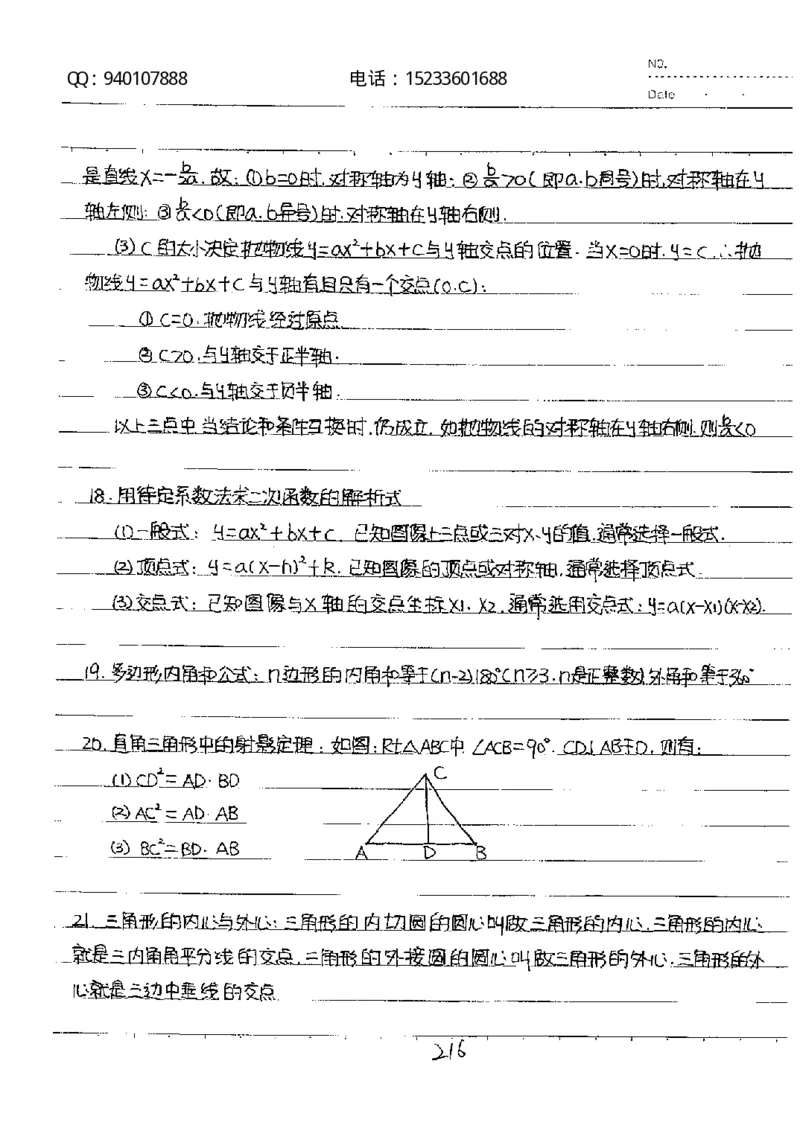 QQ：940107888 电话：15233601688 NO.
Date
是直线x=-b/2a.故:①b=0时.对称轴为y轴;②b/a>0(即a.b同号)时,对称轴在y
轴左侧;③b/a<0(即a.b异号)时.对称轴在y轴右侧.
(3)C的大小决定抛物线y=ax²+bx+c与y轴交点的位置.当x=0时.y=c.∴抛
物线y=ax²+bx+c与y轴有且只有一个交点(0.c):
①C=0.抛物线经过原点
②C>0.与y轴交于正半轴.
③C<0.与y轴交于负半轴.
以上三点中当结论和条件互换时.仍成立.如抛物线的对称轴在y轴右侧.则b/a<0
18.用待定系数法求二次函数的解析式
(1)一般式:y=ax²+bx+c.已知图像上三点或三对x、y的值.通常选择一般式.
(2)顶点式:y=a(x-h)²+k.已知图像的顶点或对称轴,通常选择顶点式.
(3)交点式:已知图像与X轴的交点坐标X1.X2.通常选用交点式:y=a(x-x1)(x-x2).
19.多边形内角和公式:n边形的内角和等于(n-2)180°(n≥3.n是正整数)外角和等于360°
20.直角三角形中的射影定理:如图:Rt△ABC中.∠ACB=90°.CD⊥AB于D.则有:
(1)CD²=AD·BD
C
(2)AC²=AD·AB
(3)BC²=BD·AB
A D B
21.三角形的内心与外心:三角形的内切圆的圆心叫做三角形的内心.三角形的内心
就是三内角角平分线的交点.三角形的外接圆的圆心叫做三角形的外心.三角形的外
心就是三边中垂线的交点.
216